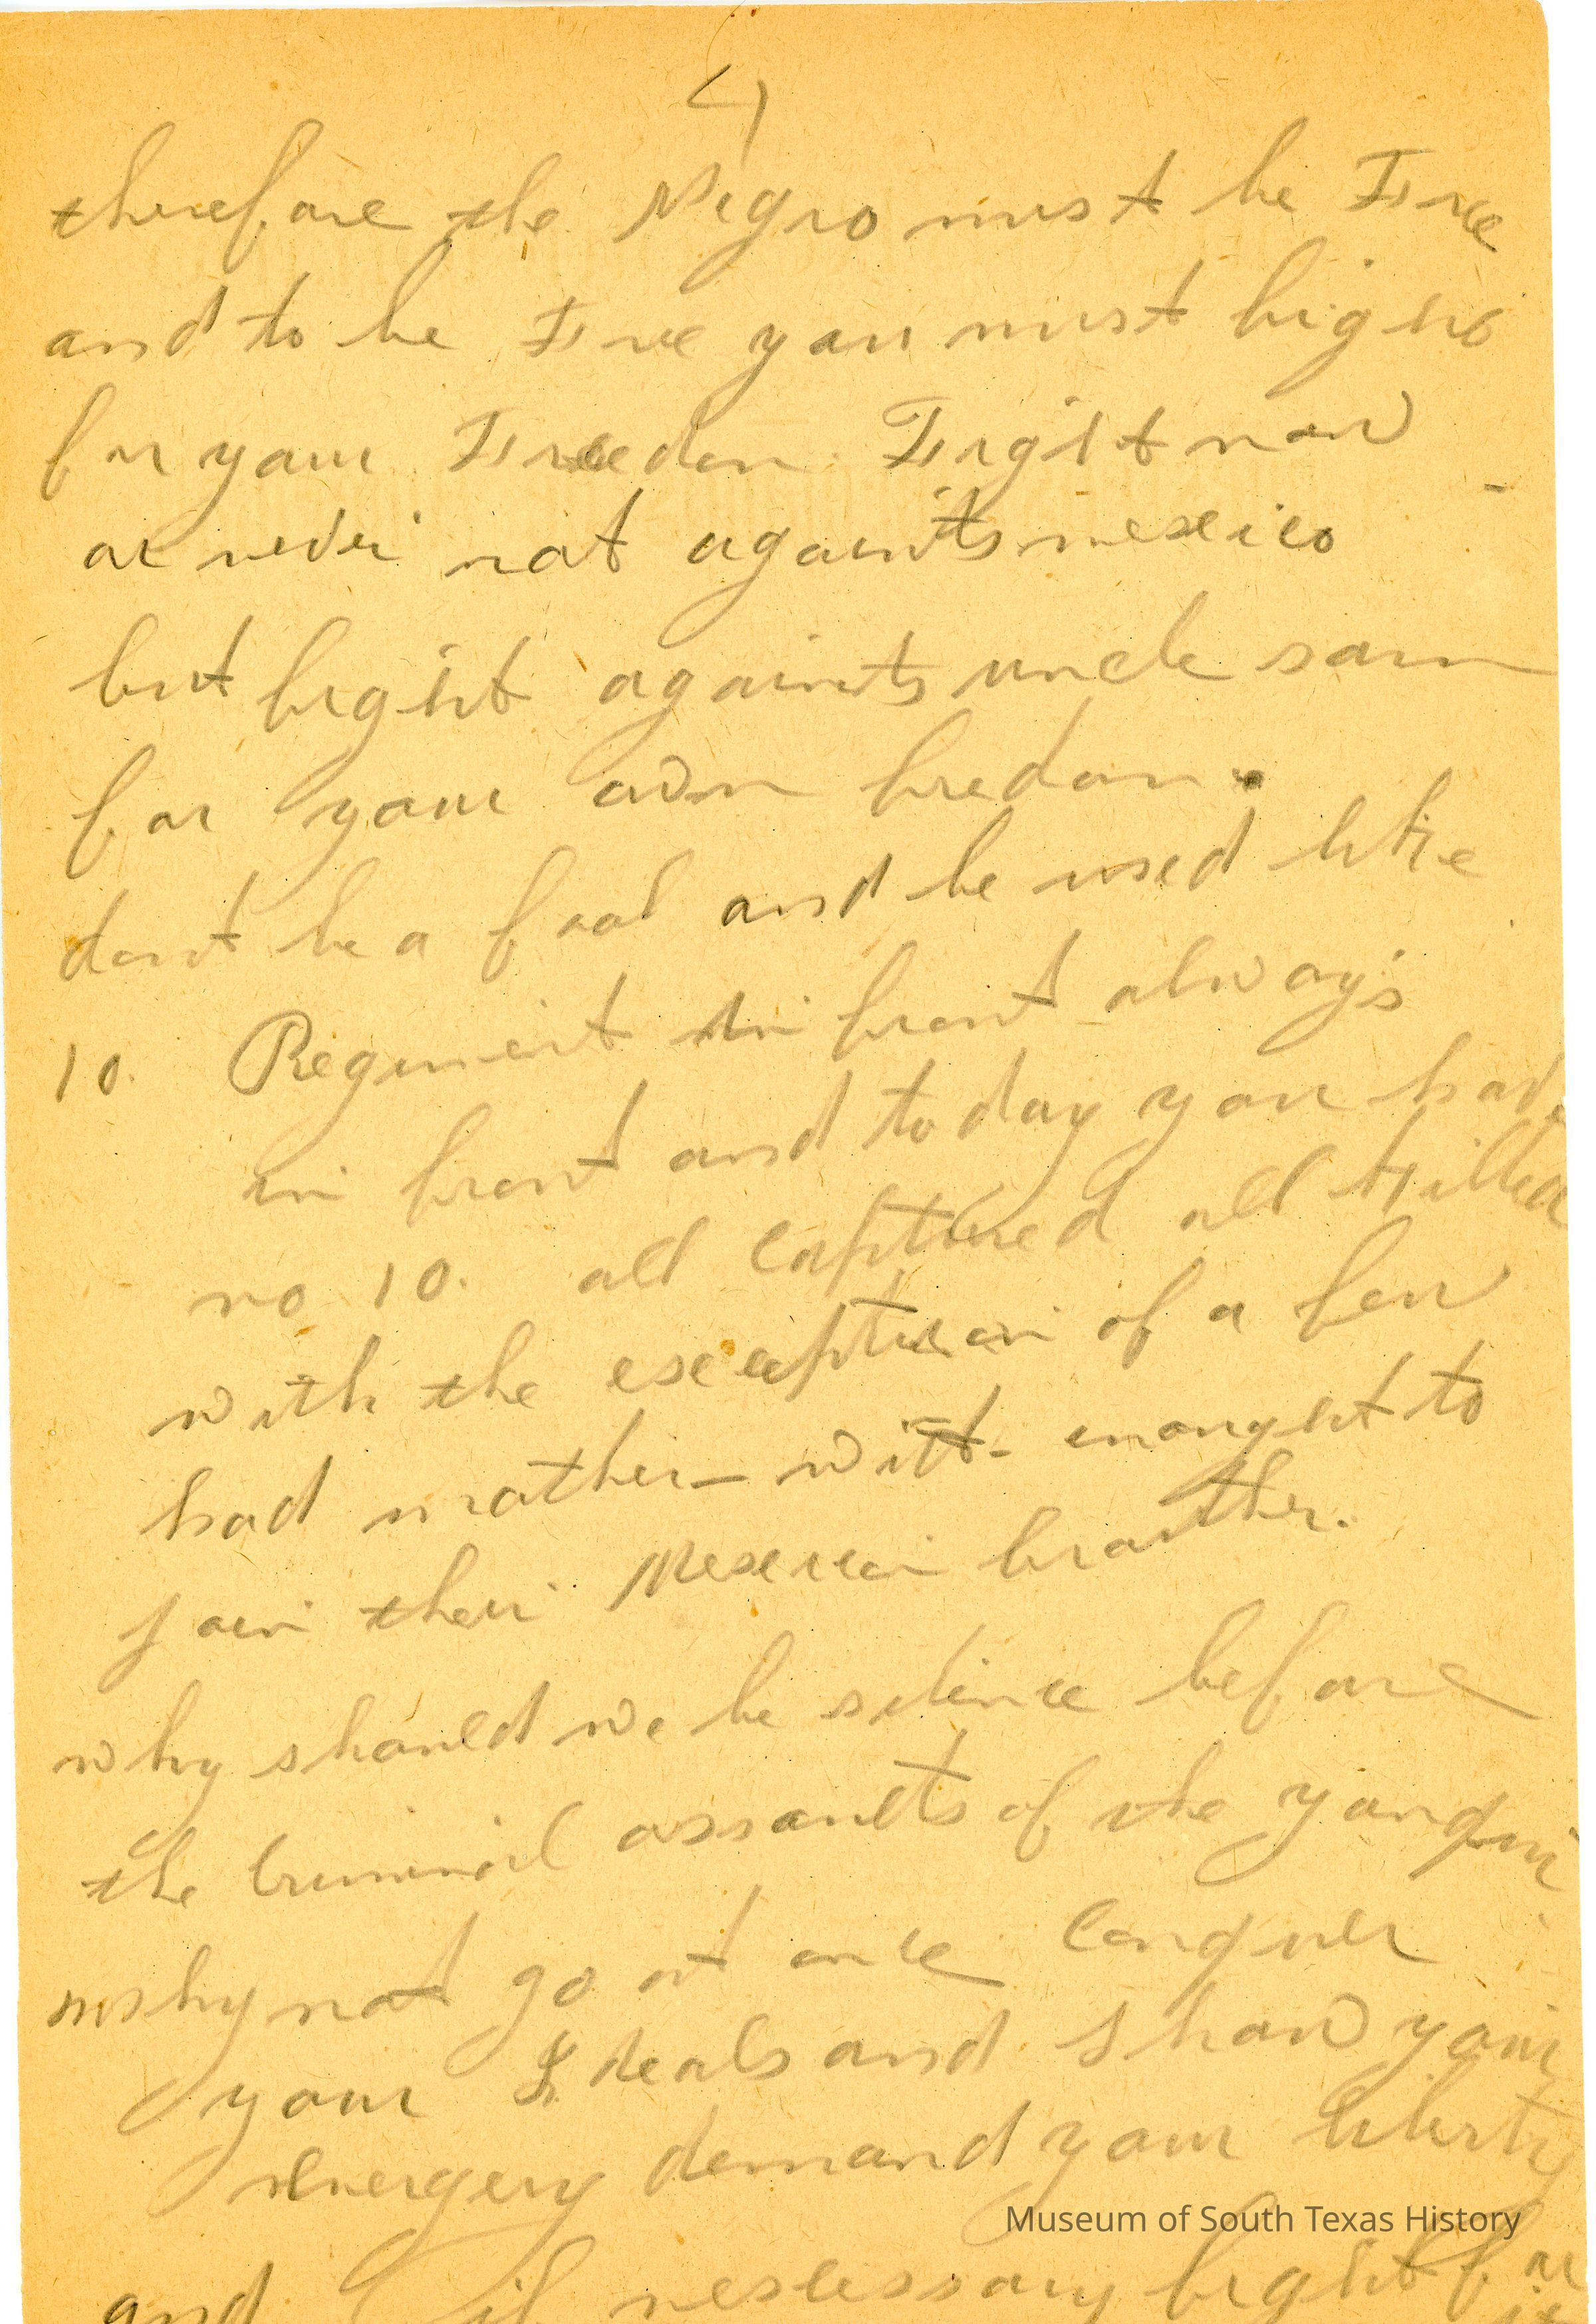 4
therefore the Negro must be Free
and to be Free you must fight
for your Freedon. Fight now
or never not againts mexico -
but fight againts uncle sam
for your own fredom.
dont be a fool and be used like
10. Regiment in front always
in front and today you had
no 10. all captured all killed
with the exception of a few
had mother- witt- enought to
join their Mexican brouther.
why should we be silence before
the criminal assaults of the yanqui
why not go at once conquer
your Ideals and show your
energery demand your liberty
Museum of South Texas History
and if nescessary fight for